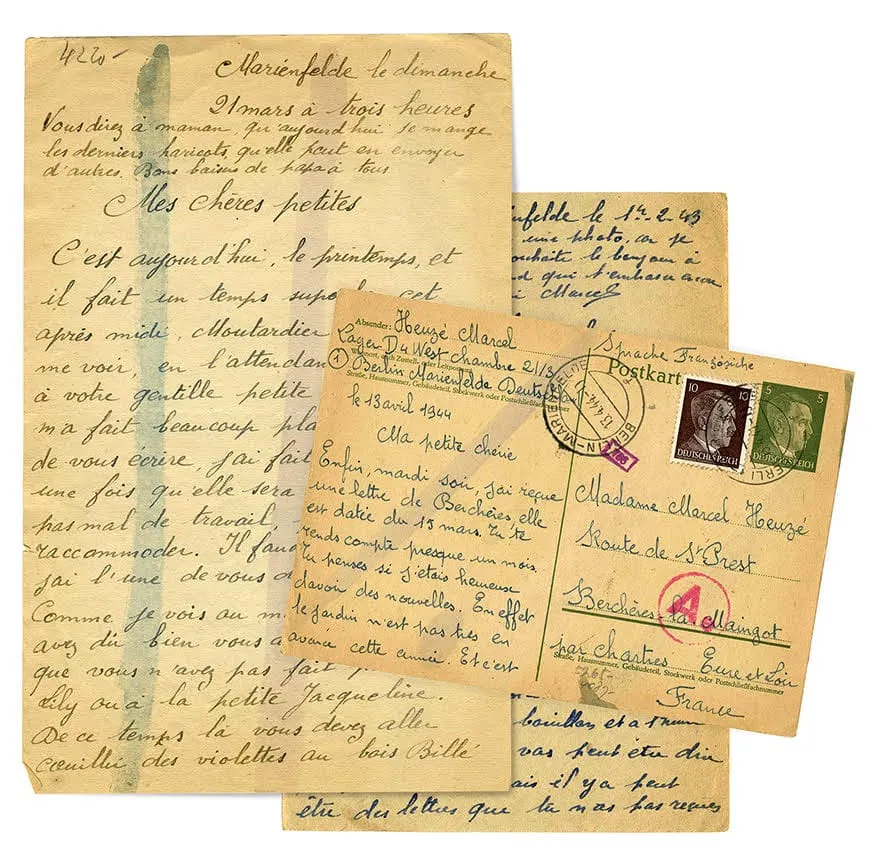 4220-
Marienfelde le dimanche
21 mars à trois heures
Vous direz à maman, qu'aujourd'hui je mange
les derniers haricots, qu'elle peut en envoyer
d'autres. Bons baisers de papa à tous
Mes chères petites
C'est aujourd'hui, le printemps, et
il fait un temps cet
après midi, Moutardier
me voir, en l'attendan
à votre gentille petite
m'a fait beaucoup pla
de vous écrire, j'ai fait
une fois qu'elle sera
pas mal de travail,
raccommoder. Il fau
j'ai l'une de vous
Comme je vois au m
avez dû bien vous a
que vous n'avez pas fait
Lily ou à la petite Jacqueline.
De ce temps là vous devez aller
cœuillir des violettes au bois Billé
nfelde le 1er-2-43
une photo, on je
ouhaite le bonjour à
d qui t'embrasse
Marcel
Absender: Heuzé Marcel
Lager D4 West Chambre 21/3
Wohnort, auch Zustell- oder Leitpostamt
Berlin Marienfelde Deutschland
Straße, Hausnummer, Gebäudeteil, Stockwerk oder Postschließfachnummer
le 13 avril 1944
Ma petite chérie
Enfin, mardi soir, j'ai reçue
une lettre de Berchères, elle
est datée du 15 mars. Tu te
rends compte presque un mois.
Tu penses si j'étais heureux
davoir des nouvelles. En effet
le jardin n'est pas très en
avance cette année. Et c'est
Sprache Französiche
Postkarte
BERLIN-MARIENFELDE
13.4.44
10 10
DEUTSCHES REICH
5 5
DEUTSCHES REICH
Madame Marcel Heuzé
Route de St Prest
Berchères-la Maingot
A
par Chartres Eure et Loir
Straße, Hausnummer, Gebäudeteil, Stockwerk oder Postschließfachnummer
France
bouillon et a
vas peut être dire
ais il y a peut
être des lettres que tu n'as pas reçues